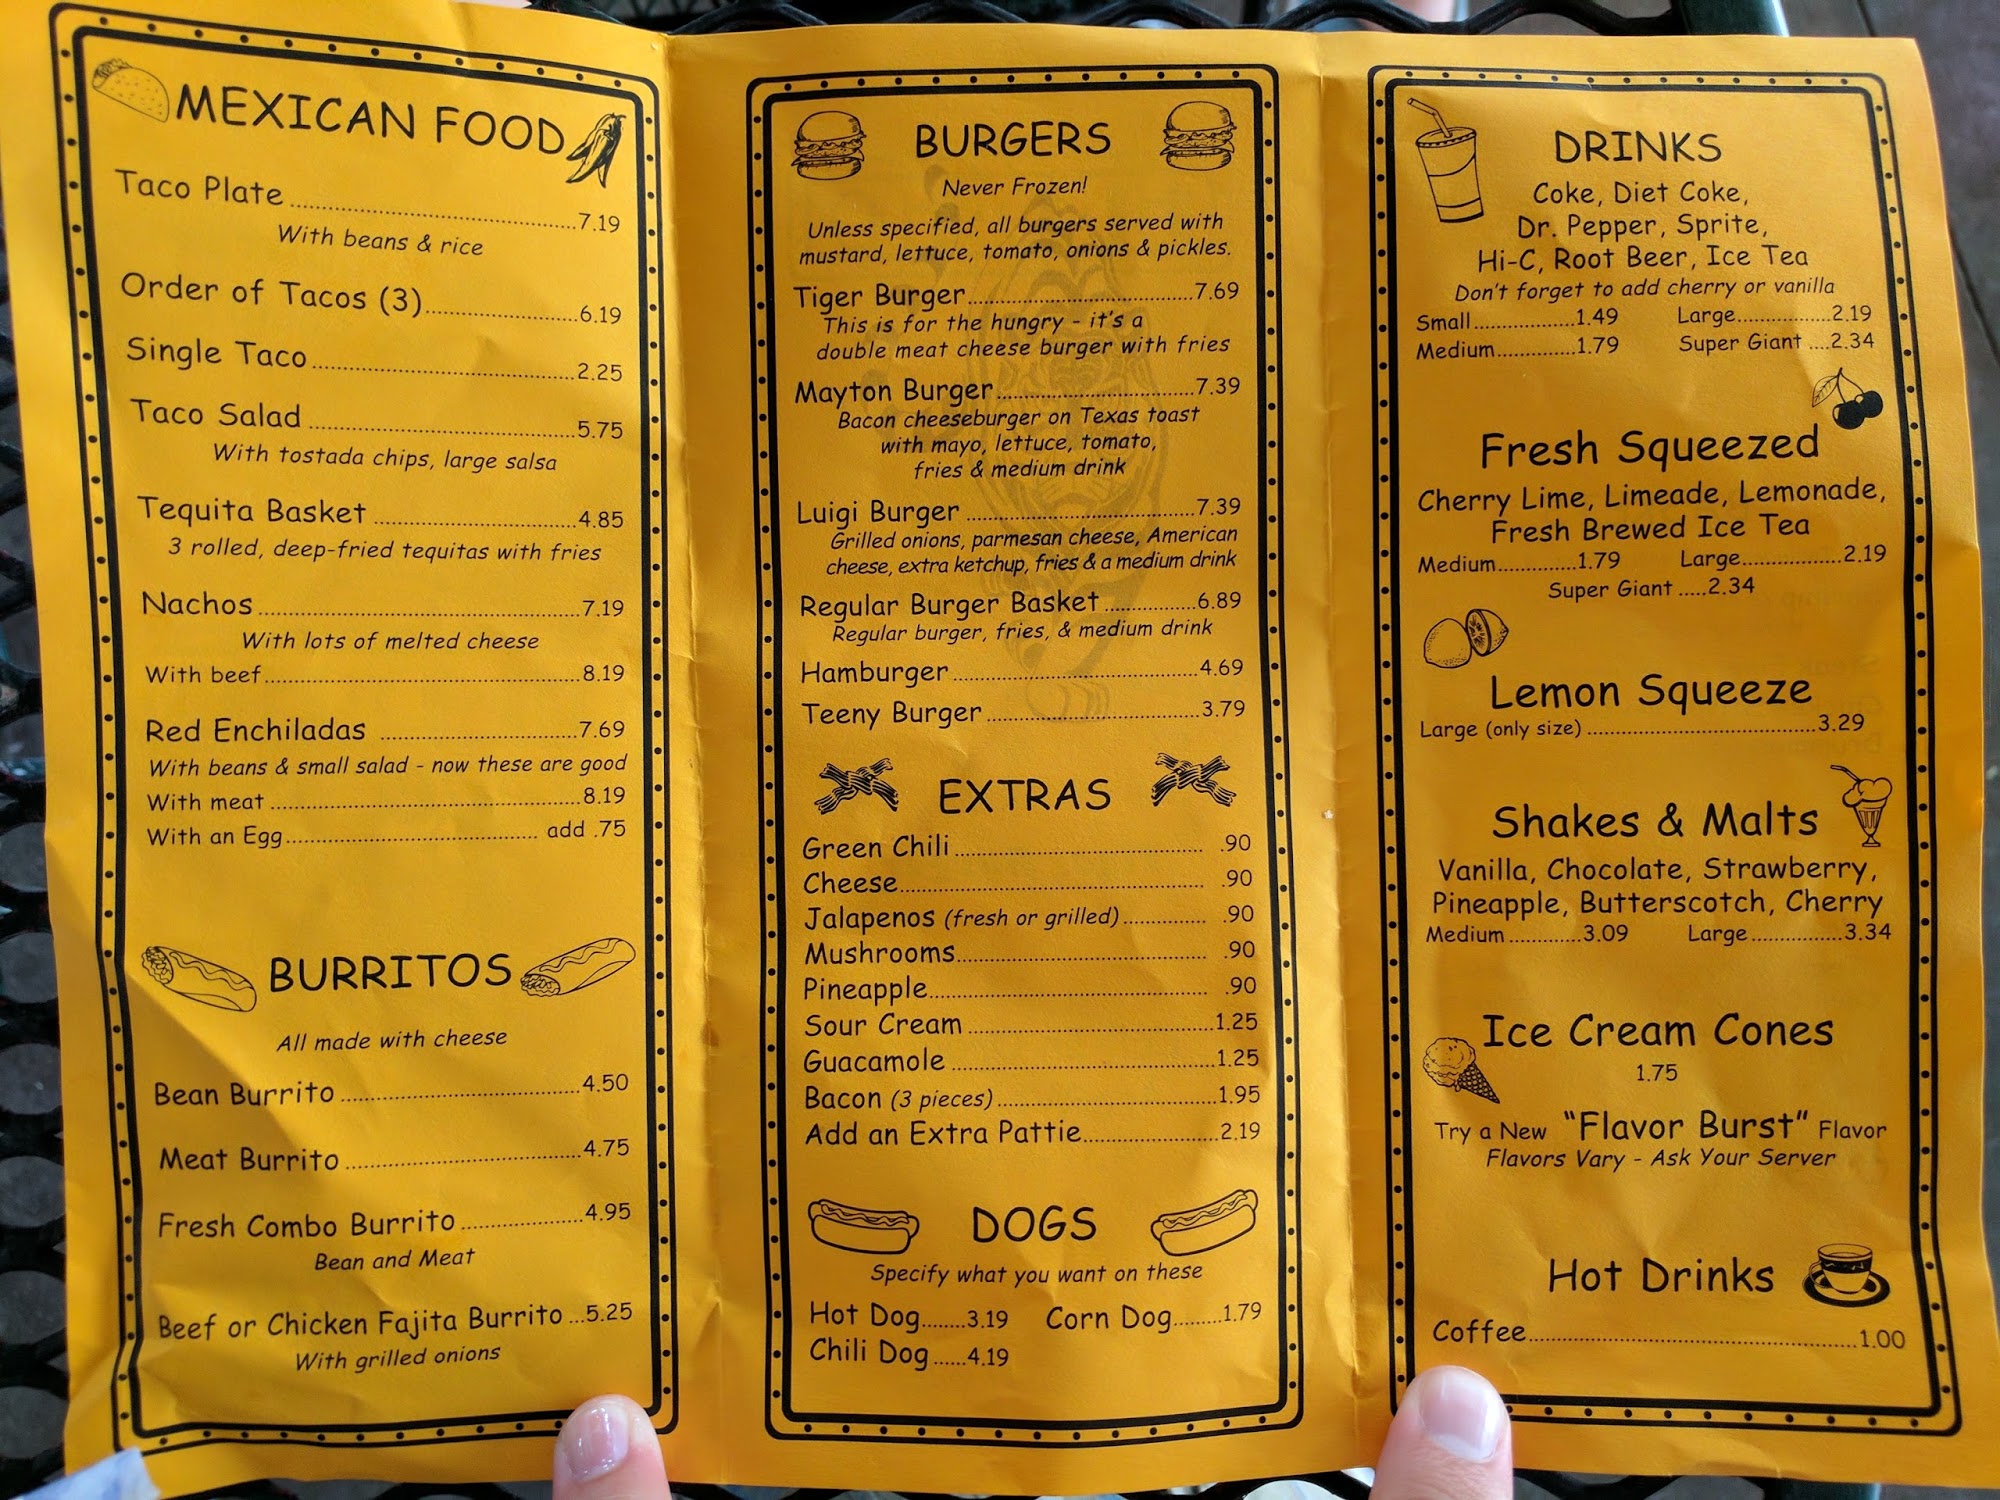 MEXICAN FOOD
Taco Plate ........ 7.19
With beans & rice
Order of Tacos (3) ........ 6.19
Single Taco ........ 2.25
Taco Salad ........ 5.75
With tostada chips, large salsa
Tequita Basket ........ 4.85
3 rolled, deep-fried tequitas with fries
Nachos ........ 7.19
With lots of melted cheese
With beef ........ 8.19
Red Enchiladas ........ 7.69
With beans & small salad - now these are good
With meat ........ 8.19
With an Egg ........ add .75
BURRITOS
All made with cheese
Bean Burrito ........ 4.50
Meat Burrito ........ 4.75
Fresh Combo Burrito ........ 4.95
Bean and Meat
Beef or Chicken Fajita Burrito ... 5.25
With grilled onions
BURGERS
Never Frozen!
Unless specified, all burgers served with
mustard, lettuce, tomato, onions & pickles.
Tiger Burger ........ 7.69
This is for the hungry - it's a
double meat cheese burger with fries
Mayton Burger ........ 7.39
Bacon cheeseburger on Texas toast
with mayo, lettuce, tomato,
fries & medium drink
Luigi Burger ........ 7.39
Grilled onions, parmesan cheese, American
cheese, extra ketchup, fries & a medium drink
Regular Burger Basket ........ 6.89
Regular burger, fries, & medium drink
Hamburger ........ 4.69
Teeny Burger ........ 3.79
EXTRAS
Green Chili ........ .90
Cheese ........ .90
Jalapenos (fresh or grilled) ........ .90
Mushrooms ........ .90
Pineapple ........ .90
Sour Cream ........ 1.25
Guacamole ........ 1.25
Bacon (3 pieces) ........ 1.95
Add an Extra Pattie ........ 2.19
DOGS
Specify what you want on these
Hot Dog ........ 3.19 Corn Dog ........ 1.79
Chili Dog ...... 4.19
DRINKS
Coke, Diet Coke,
Dr. Pepper, Sprite,
Hi-C, Root Beer, Ice Tea
Don't forget to add cherry or vanilla
Small ........ 1.49 Large ........ 2.19
Medium ........ 1.79 Super Giant .... 2.34
Fresh Squeezed
Cherry Lime, Limeade, Lemonade,
Fresh Brewed Ice Tea
Medium ........ 1.79 Large ........ 2.19
Super Giant ..... 2.34
Lemon Squeeze
Large (only size) ........ 3.29
Shakes & Malts
Vanilla, Chocolate, Strawberry,
Pineapple, Butterscotch, Cherry
Medium ........ 3.09 Large ........ 3.34
Ice Cream Cones
1.75
Try a New "Flavor Burst" Flavor
Flavors Vary - Ask Your Server
Hot Drinks
Coffee ........ 1.00